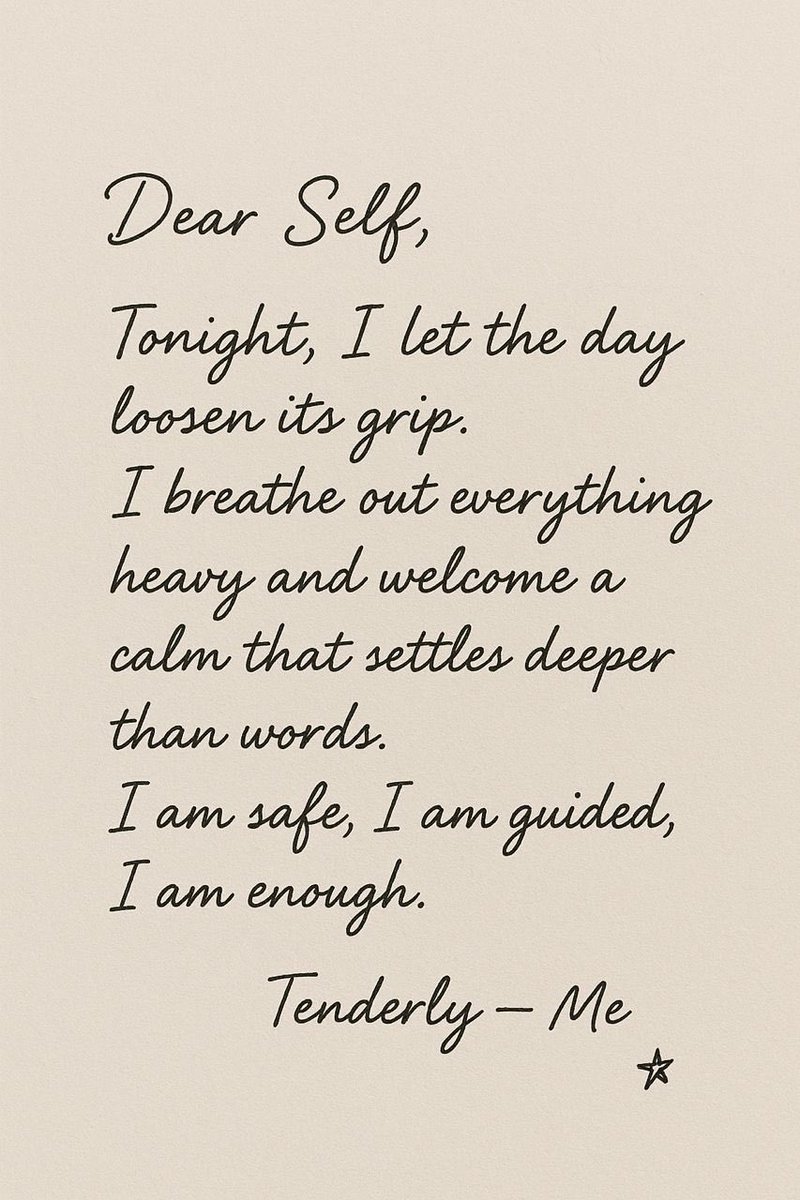 Dear Self,
Tonight, I let the day
loosen its grip.
I breathe out everything
heavy and welcome a
calm that settles deeper
than words.
I am safe, I am guided,
I am enough.
Tenderly — Me